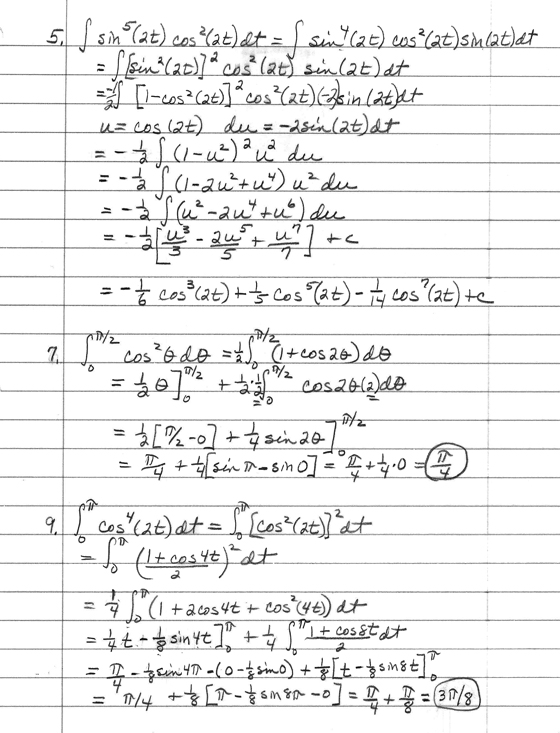 5. ∫ sin⁵(2t) cos²(2t) dt = ∫ sin⁴(2t) cos²(2t) sin(2t) dt
= ∫ [sin²(2t)]² cos²(2t) sin(2t) dt
= -1/2 ∫ [1-cos²(2t)]² cos²(2t)(-2)sin(2t) dt
u = cos(2t) du = -2sin(2t) dt
= -1/2 ∫ (1-u²)² u² du
= -1/2 ∫ (1-2u²+u⁴) u² du
= -1/2 ∫ (u² - 2u⁴ + u⁶) du
= -1/2 [u³/3 - 2u⁵/5 + u⁷/7] + c
= -1/6 cos³(2t) + 1/5 cos⁵(2t) - 1/14 cos⁷(2t) + c
7. ∫₀^π/2 cos²θ dθ = 1/2 ∫₀^π/2 (1+cos2θ) dθ
= 1/2 θ]₀^π/2 + 1/2·1/2 ∫₀^π/2 cos2θ(2)dθ
= 1/2 [π/2 - 0] + 1/4 sin2θ]₀^π/2
= π/4 + 1/4[sin π - sin 0] = π/4 + 1/4·0 = π/4
9. ∫₀^π cos⁴(2t) dt = ∫₀^π [cos²(2t)]² dt
= ∫₀^π ((1+cos4t)/2)² dt
= 1/4 ∫₀^π (1 + 2cos4t + cos²(4t)) dt
= 1/4 t - 1/8 sin4t]₀^π + 1/4 ∫₀^π (1+cos8t)/2 dt
= π/4 - 1/8 sin4π - (0 - 1/8 sin0) + 1/8 [t - 1/8 sin8t]₀^π
= π/4 + 1/8 [π - 1/8 sin8π - 0] = π/4 + π/8 = 3π/8